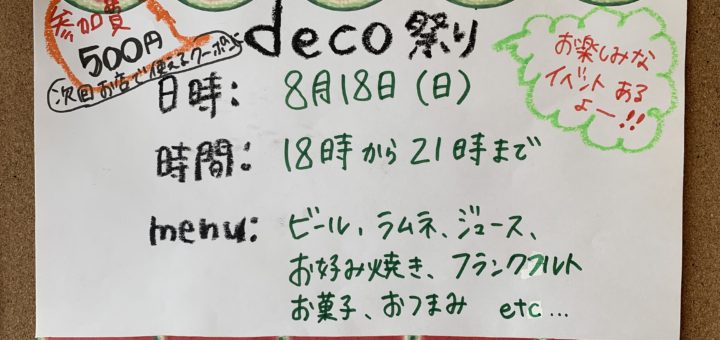 参加費
500円
次回お店で使えるクーポン
deco祭り
お楽しみな
イベントある
よー!!
日時: 8月18日(日)
時間: 18時から21時まで
menu: ビール、ラムネ、ジュース、
お好み焼き、フランクフルト
お菓子、おつまみ etc...